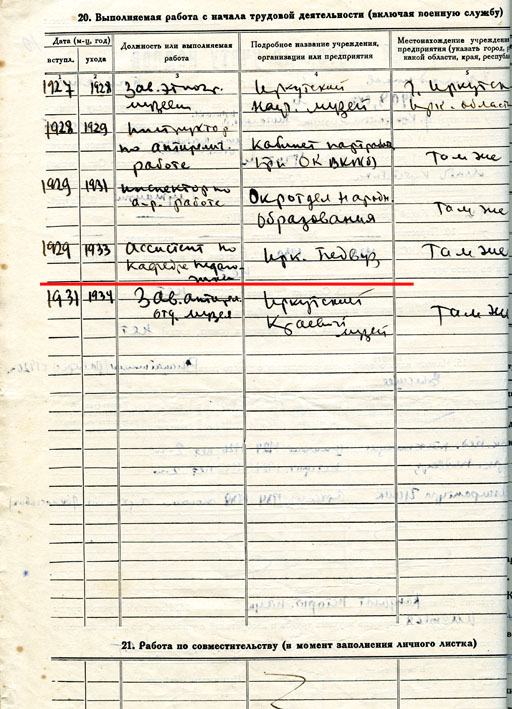 20. Выполняемая работа с начала трудовой деятельности (включая военную службу)
Дата (м-ц, год)
вступл.
ухода
Должность или выполняемая
работа
Подробное название учреждения,
организации или предприятия
Местонахождение учреждения
предприятия (указать город, р
кой области, края, республи
1 2 3 4 5
1927 1928 Зав. этногр. Иркутский г. Иркутск
музеем науч. музей Ирк. област
1928 1929 Инструктор
по антирелиг. Кабинет
работе при ОК ВКП(б) Там же
1929 1931 инспектор по Окротдел народн.
а-р. работе образования Там же
1929 1933 ассистент по Ирк. Педвуз Там же
кафедре педаго-
гики
1931 1934 Зав. антирел. Иркутский
отд. музея Краевой музей Там же
21. Работа по совместительству (в момент заполнения личного листка)